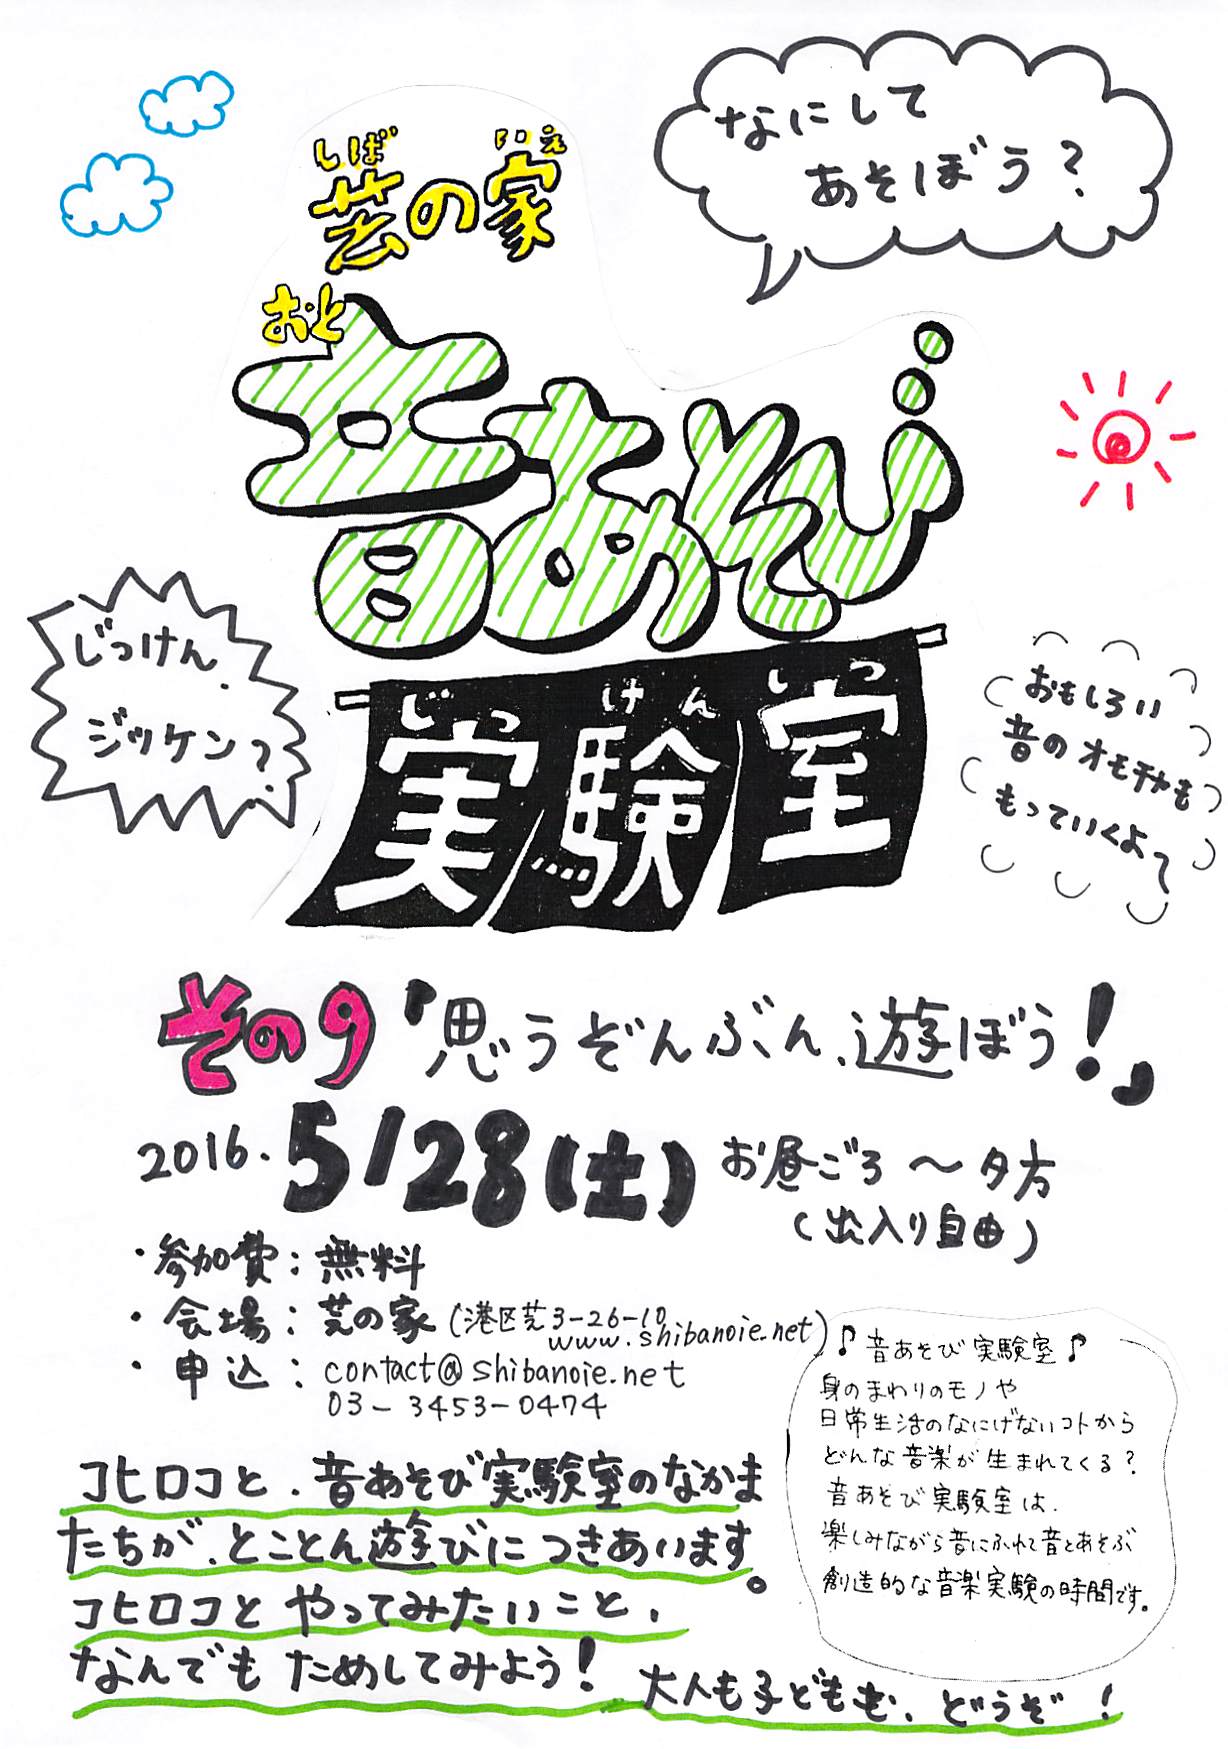 なにして
あそぼう?
しば いえ
芸の家
おと
音あそび
じっけん、
ジッケン?
じっ けん しつ
実験室
おもしろい
音のオモチャも
もっていくよ〜
その9「思うぞんぶん、遊ぼう!」
2016. 5/28(土) お昼ごろ 〜 夕方
(出入り自由)
・参加費:無料
・会場:芝の家(港区芝3-26-10
www.shibanoie.net)
・申込:contact@shibanoie.net
03-3453-0474
♪音あそび実験室♪
身のまわりのモノや
日常生活のなにげないコトから
どんな音楽が生まれてくる?
音あそび実験室は、
楽しみながら音にふれて音とあそぶ
創造的な音楽実験の時間です。
コヒロコと、音あそび実験室のなかま
たちが、とことん遊びにつきあいます。
コヒロコと やってみたいこと、
なんでも ためしてみよう!
大人も子どもも、どうぞ!